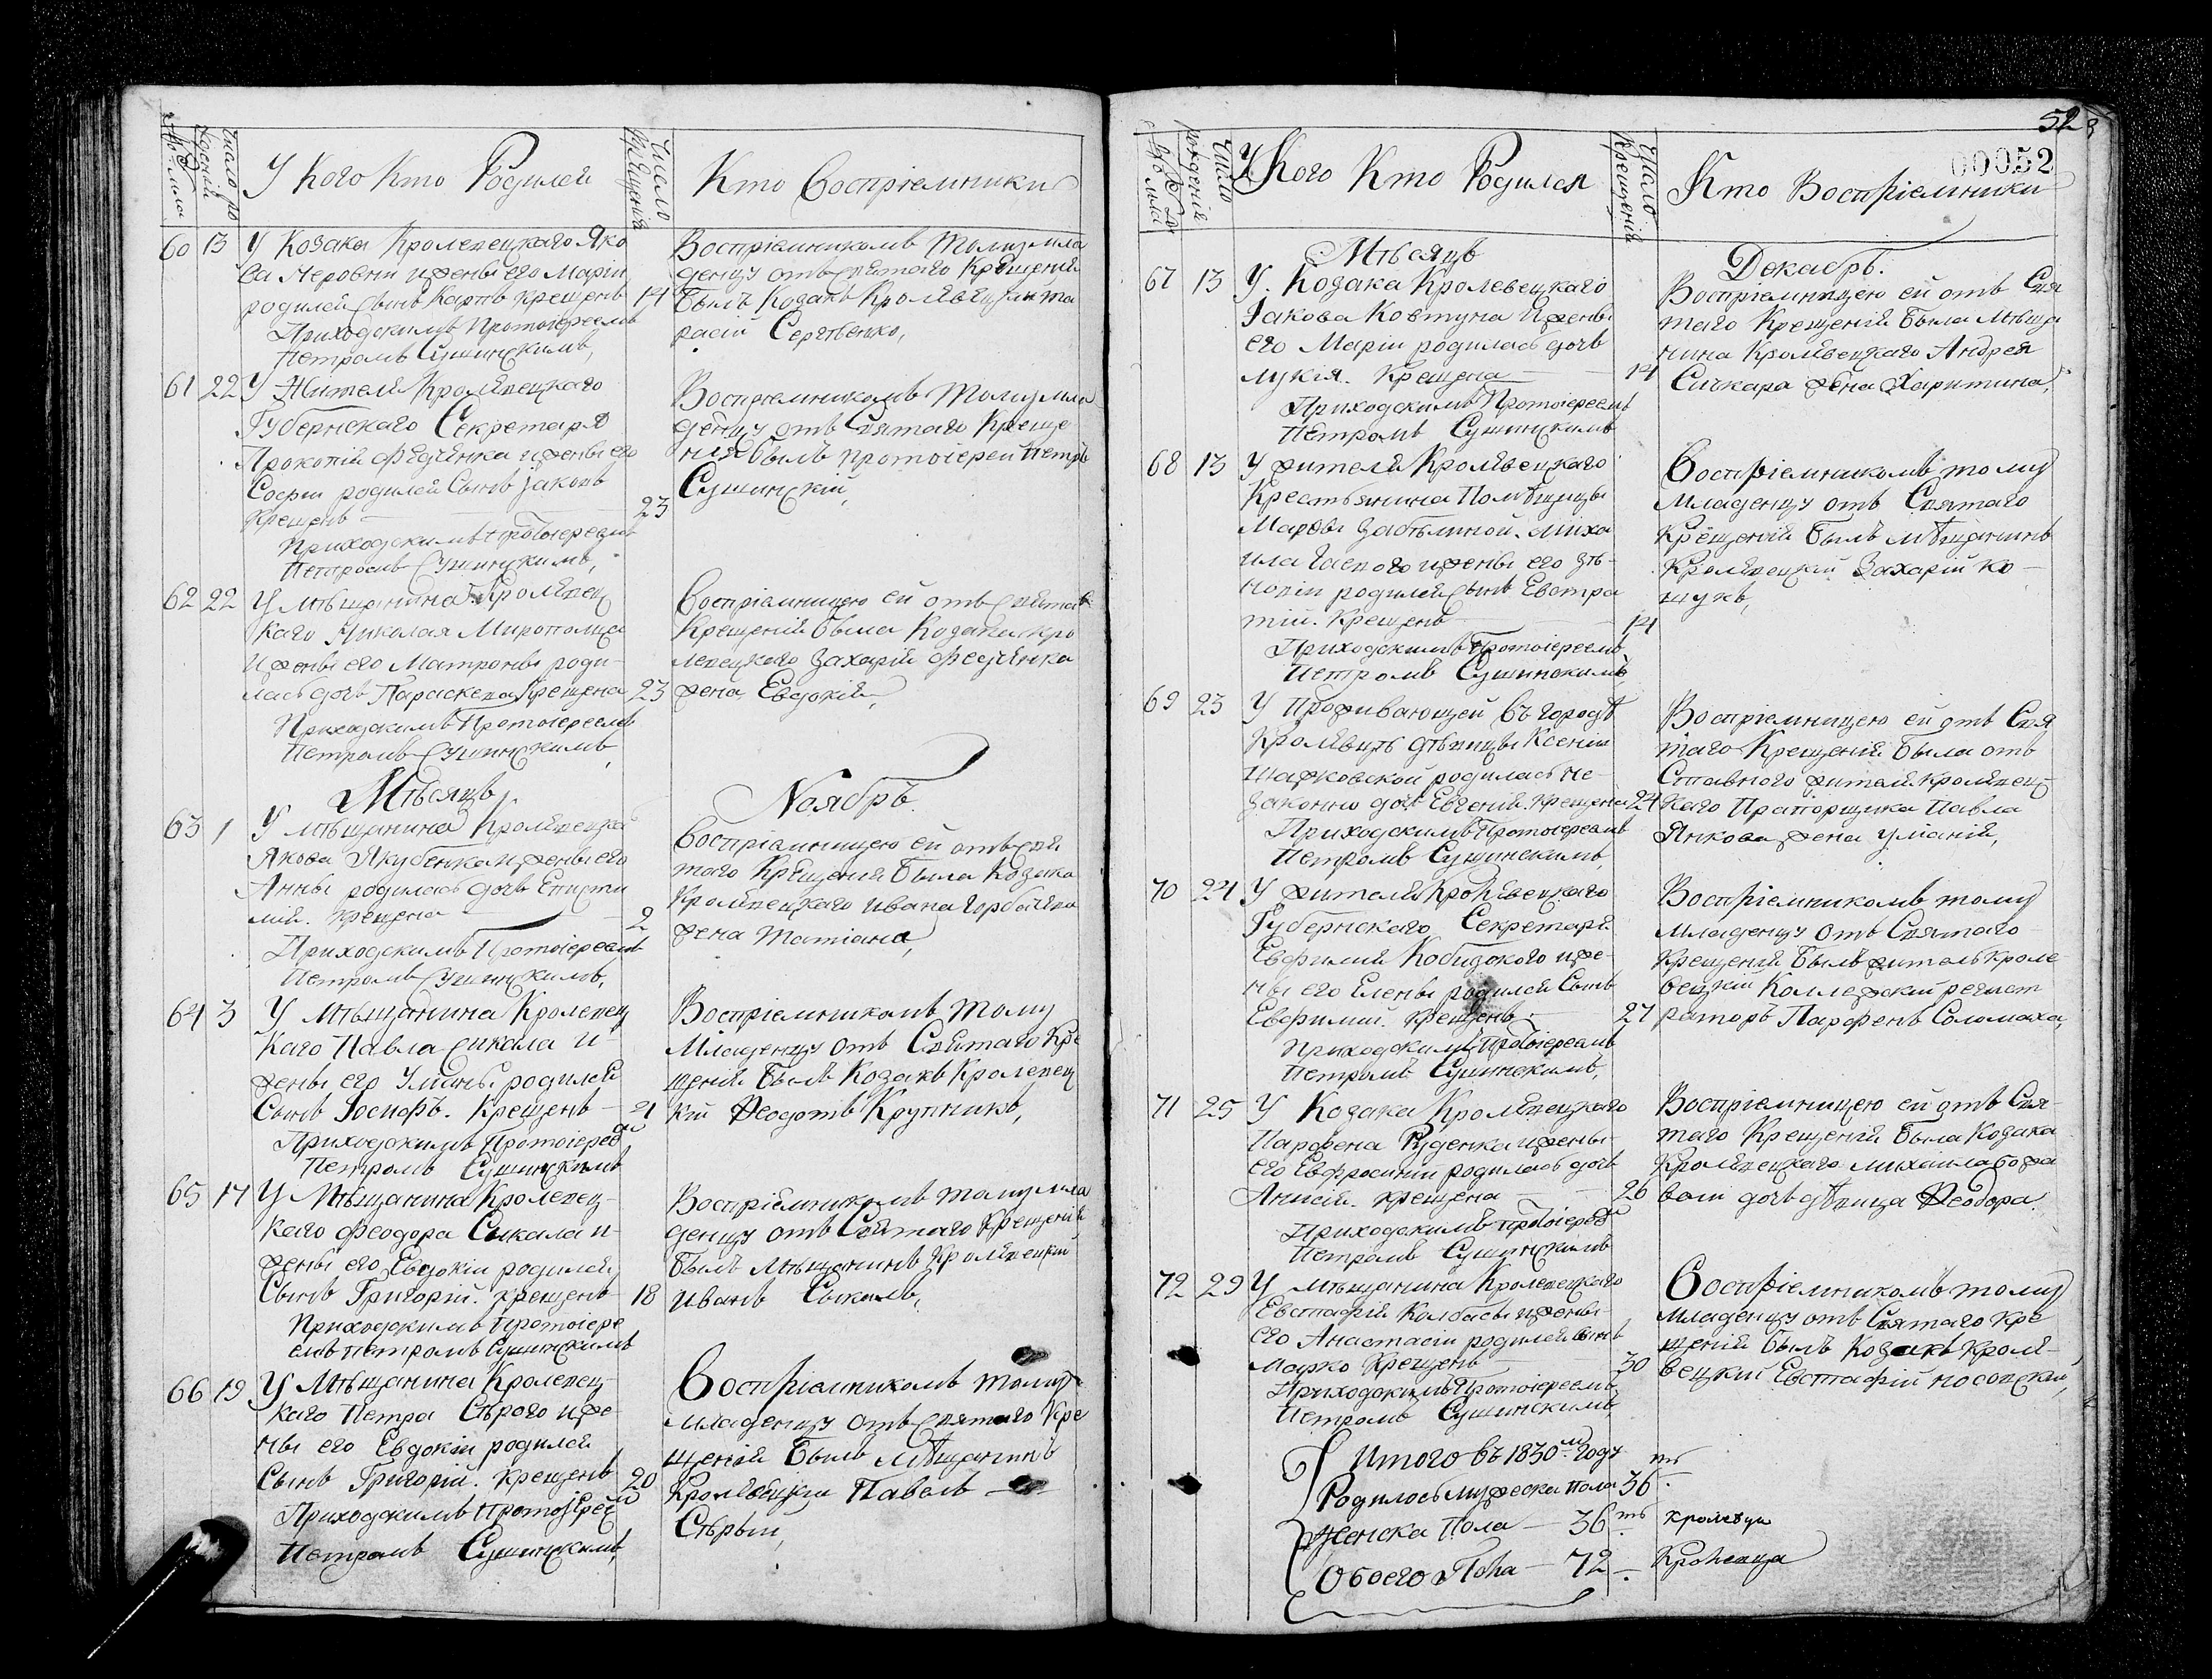 У Кого Кто Родился
Число крещенія
Кто Воспріемники
60 13 У Козака Кролевецкаго Яко
ва Неровни и жены его Маріи
родился сынъ Карпъ крещенъ 14
Приходскимъ Протоіереемъ
Петромъ Сушинскимъ,
Воспріемникомъ тому мла
денцу отъ святаго Крещенія
былъ Козакъ Кролѣвецкій Та
расій Сергѣенко,
61 22 У Жителя Кролѣвецкаго
Губернскаго Секретаря
Прокопія Федченка и жены его
Софіи родился Сынъ Іаковъ
крещенъ 23
Приходскимъ Протоіереемъ
Петромъ Сушинскимъ,
Воспріемникомъ тому мла
денцу отъ Святаго Креще
нія былъ протоіерей Петръ
Сушинскій,
62 22 У мѣщанина Кролѣвец
каго Николая Миропольца
и жены его Матроны роди
лась дочь Параскева крещена 23
Приходскимъ Протоіереемъ
Петромъ Сушинскимъ,
Воспріемницею ей отъ святаго
Крещенія была Козака Кро
левецкого Захарія Федченка
жена Евдокія,
Мѣсяцъ Ноябрь
63 1 У мѣщанина Кролѣвецкаго
Якова Якубенка и жены его
Анны родилась дочь Еписти
мія. крещена 2
Приходскимъ Протоіереемъ
Петромъ Сушинскимъ,
Воспріемницею ей отъ свя
таго Крещенія была Козака
Кролѣвецкаго Ивана Горбачева
жена Татіана,
64 3 У Мѣщанина Кролевец
каго Павла Сикала и
жены его Уліаны родился
Сынъ Іосифъ. Крещенъ 4
Приходскимъ Протоіереемъ
Петромъ Сушинскимъ
Воспріемникомъ тому
Младенцу отъ Святаго Кре
щенія былъ Козакъ Кролевец
кій Феодотъ Крупникъ,
65 17 У Мѣщанина Кролевец
каго Феодора Сикала и
жены его Евдокіи родился
Сынъ Григорій. крещенъ 18
Приходскимъ Протоіере
емъ Петромъ Сушинскимъ
Воспріемникомъ тому мла
денцу отъ Святаго Крещенія
былъ мѣщанинъ Кролѣвецкій
Иванъ Сикалъ,
66 19 У Мѣщанина Кролевец
каго Петра Сѣрого и же
ны его Евдокіи родился
Сынъ Григорій. крещенъ 20
Приходскимъ Протоіереемъ
Петромъ Сушинскимъ,
Воспріемникомъ тому
младенцу отъ святаго Кре
щенія былъ мѣщанинъ
Кролѣвецкій Павелъ
Сѣрый,
52
00052
У Кого Кто Родился
Число Крещенія
Кто Воспріемники
Мѣсяцъ Декабрь.
67 13 У. Козака Кролевецкаго
Іакова Ковтуна и жены
его Маріи родилась дочь
Лукія. Крещена 14
Приходскимъ Протоіереемъ
Петромъ Сушинскимъ
Воспріемницею ей отъ Свя
таго Крещенія была мѣща
нина Кролѣвецкаго Андрея
Сичкара жена Харитина,
68 13 У жителя Кролѣвецкаго
Крестьянина Помѣщицы
Марфы Забѣлиной. Миха
ила Гаевого и жены его Зѣ
новіи родился сынъ Евстра
тій. Крещенъ 14
Приходскимъ Протоіереемъ
Петромъ Сушинскимъ,
Воспріемникомъ тому
младенцу отъ Святаго
Крещенія былъ мѣщанинъ
Кролѣвецкій Захарій Ко
щукъ,
69 23 У Проживающей въ городѣ
Кролѣвцѣ дѣвицы Ксеніи
родилась не
законно дочь Евгенія. крещена 24
Приходскимъ Протоіереемъ
Петромъ Сушинскимъ,
Воспріемницею ей отъ Свя
таго Крещенія была от
ставного жителя Кролѣвец
каго Прапорщика Павла
Янкова жена Уліанія,
70 24 У жителя Кролѣвецкаго
Губернскаго Секретаря
Евфимія Кобизского и же
ны его Елены родился Сынъ
Евфимій. Крещенъ. 27
Приходскимъ Протоіереемъ
Петромъ Сушинскимъ,
Воспріемникомъ тому
младенцу отъ Святаго
Крещенія былъ житель Кроле
вецкій Коллежскій регист
раторъ Парфенъ Соломаха,
71 25 У Козака Кролѣвецкаго
Парфена Руденка и жены
его Евфросиніи родилась дочь
Анисія. крещена 26
Приходскимъ протоіереемъ
Петромъ Сушинскимъ
Воспріемницею ей отъ Свя
таго Крещенія была Козака
Кролѣвецкаго Михаила
дочь дѣвица Феодора.
72 29 У мѣщанина Кролевецкаго
Евстафія Колбасы и жены
его Анастасіи родился сынъ
Марко Крещенъ 30
Приходскимъ Протоіереемъ
Петромъ Сушинскимъ,
Воспріемникомъ тому
младенцу отъ Святаго Кре
щенія былъ Козакъ Кролѣ
вецкій Евстафій Носовскій,
Итого въ 1830м году
Родилось мужеска пола 36
Женска Пола — 36 Кролѣвца
Обоего Пола — 72 Кролевца